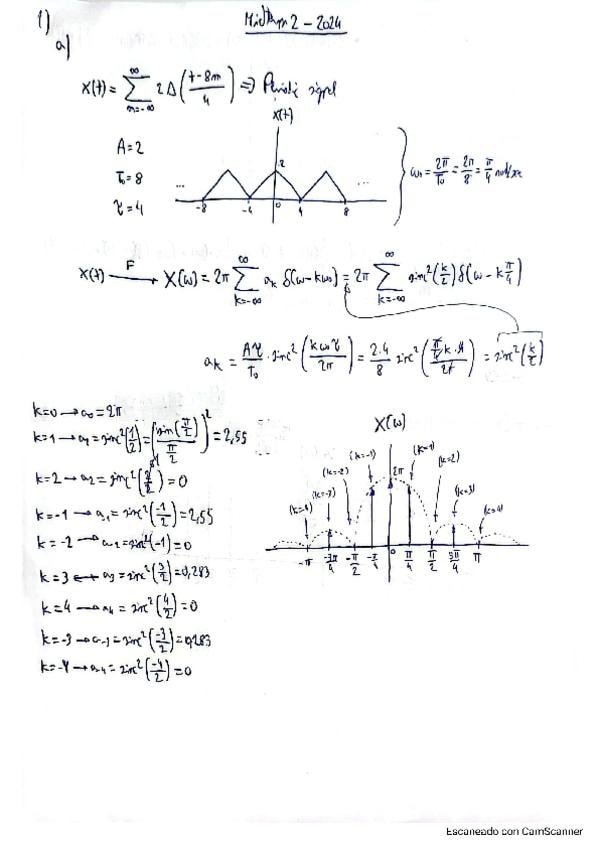 1)
Midterm 2 - 2024
a)
X(t) = ∑_{m=-∞}^{∞} 2Δ((t-8m)/4) ⇒ Periodic signal
X(t)
A=2
T₀=8
τ=4
2
... -8 -4 0 4 8 ...
ω₀ = 2π/T₀ = 2π/8 = π/4 rad/sec
X(t) —F→ X(ω) = 2π ∑_{k=-∞}^{∞} a_k δ(ω-kω₀) = 2π ∑_{k=-∞}^{∞} sinc²(k/2) δ(ω-kπ/4)
a_k = Aτ/T₀ · sinc²(kω₀τ/2π) = 2.4/8 sinc²(π/4 k·4/2π) = sinc²(k/2)
k=0 → a₀ = 2π
k=1 → a₁ = sinc²(1/2) = (sin(π/2)/(π/2))² = 2,55
k=2 → a₂ = sinc²(2/2) = 0
k=-1 → a₋₁ = sinc²(-1/2) = 2,55
k=-2 → a₋₂ = sinc²(-1) = 0
k=3 ← a₃ = sinc²(3/2) = 0,283
k=4 → a₄ = sinc²(4/2) = 0
k=-3 → a₋₃ = sinc²(-3/2) = 0,283
k=-4 → a₋₄ = sinc²(-4/2) = 0
X(ω)
(k=-1) 2π (k=1)
(k=-2) (k=2)
(k=3)
(k=4)
-π -3π/4 -π/2 -π/4 0 π/4 π/2 3π/4 π
Escaneado con CamScanner